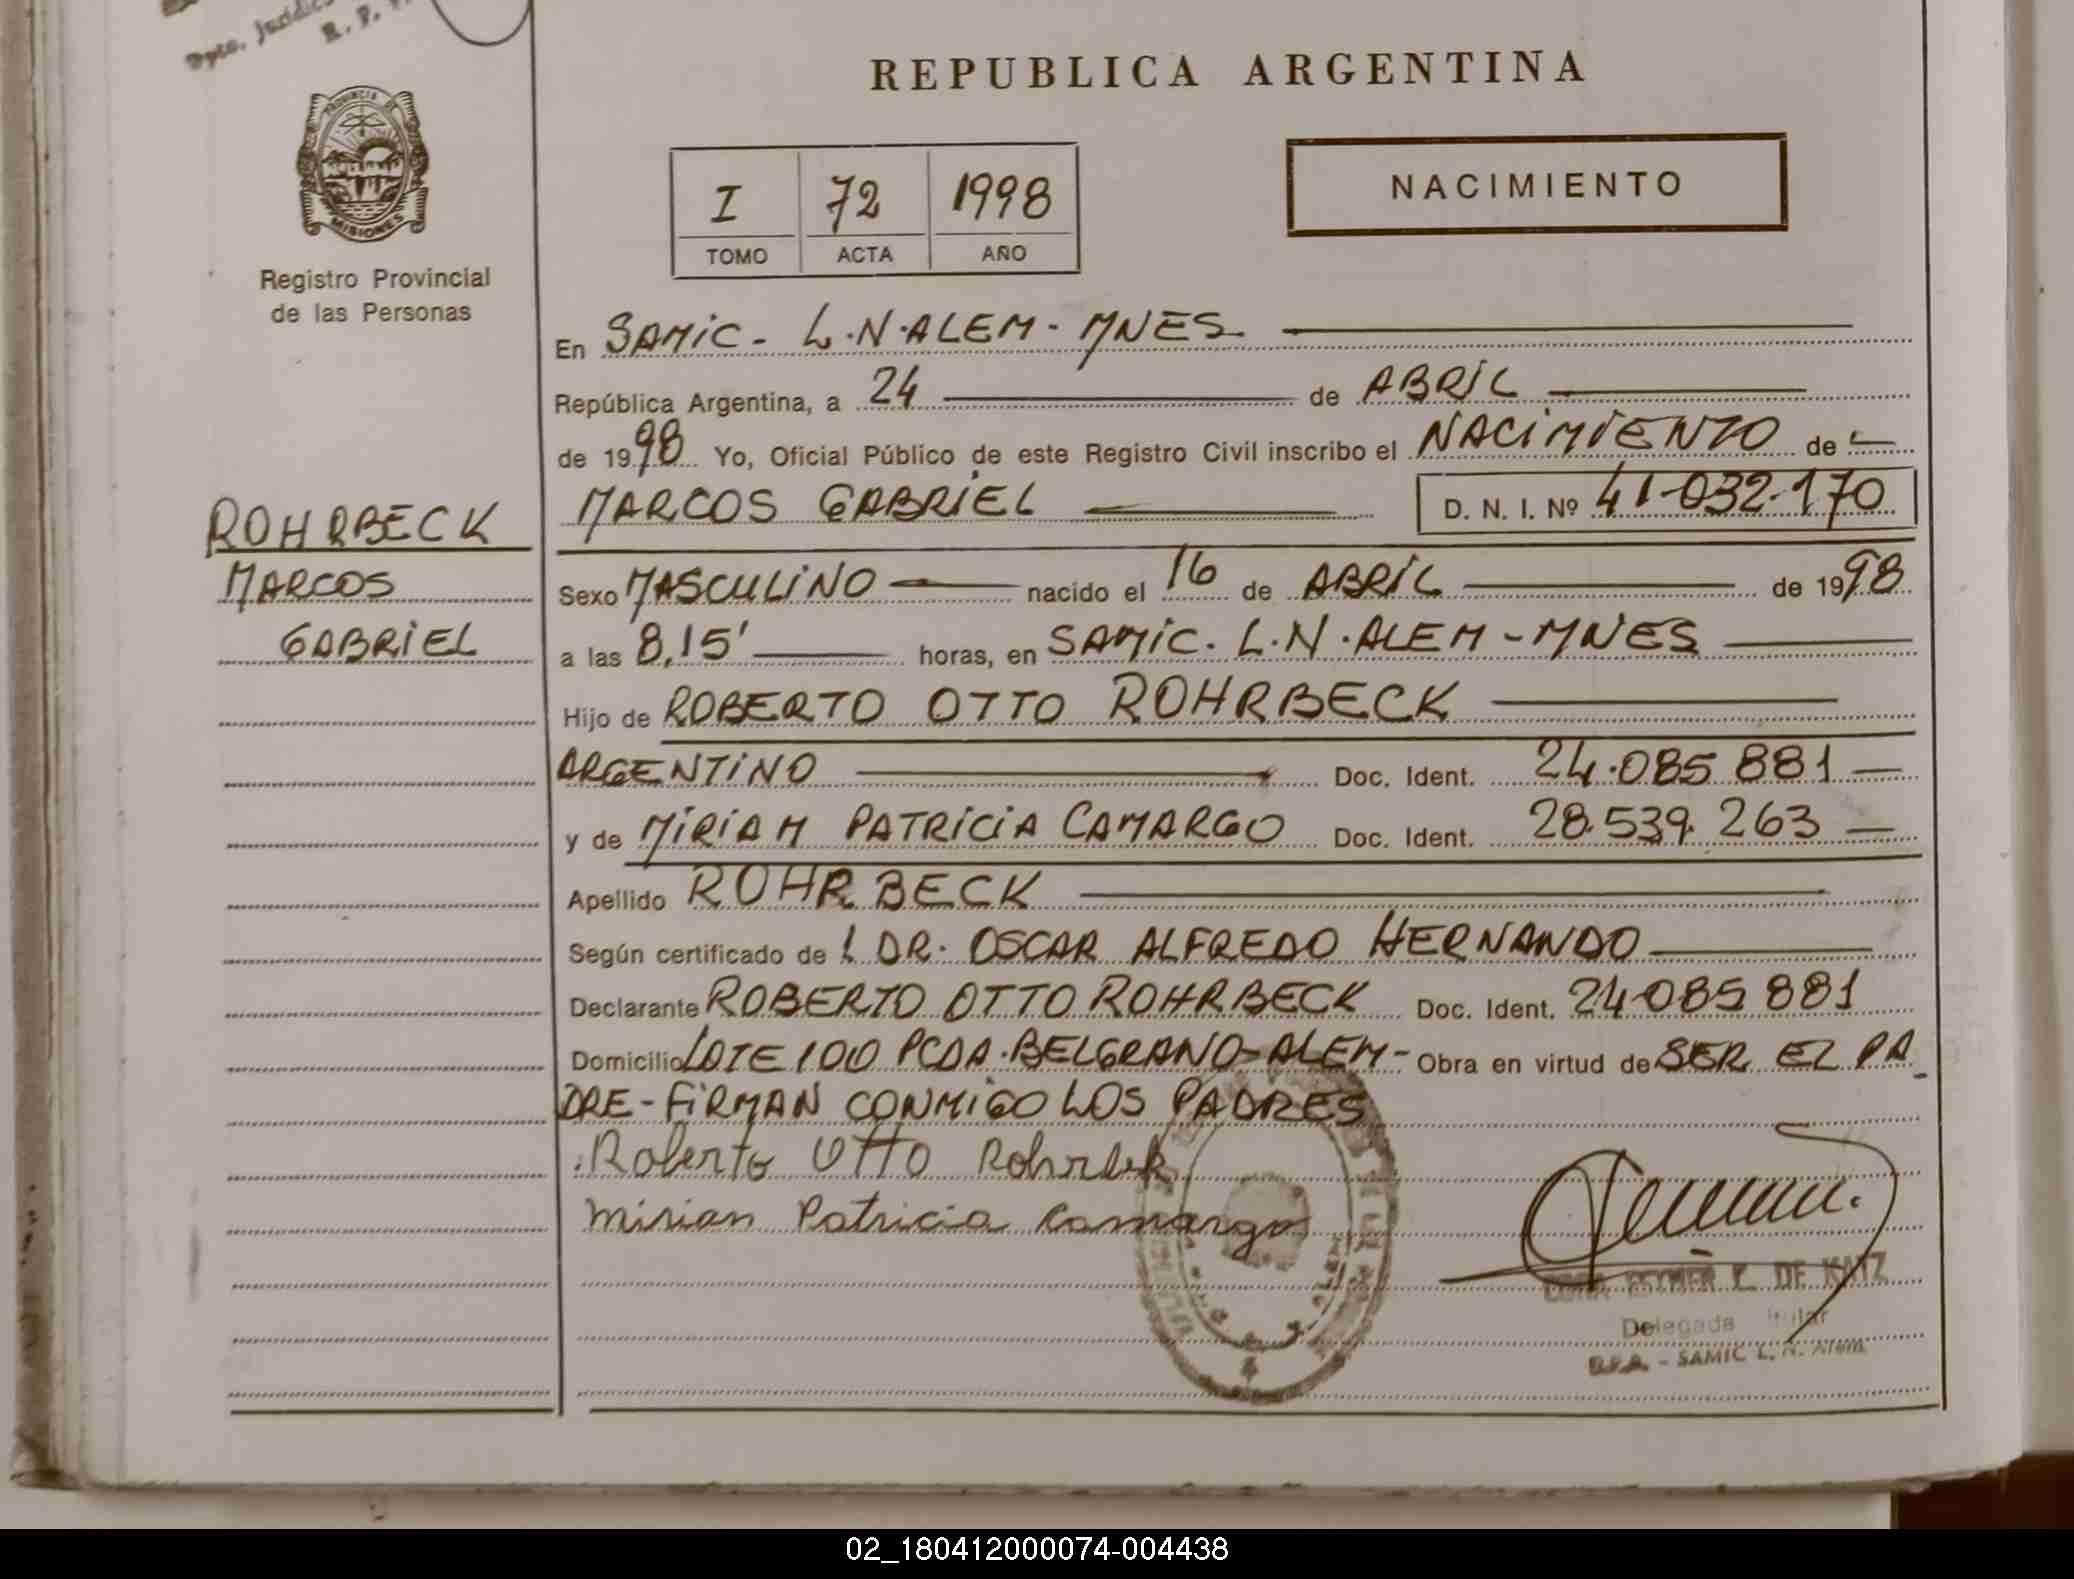 Dpto. Jurídico
R. P. P.
REPUBLICA ARGENTINA
PROVINCIA DE
MISIONES
I 72 1998
TOMO ACTA AÑO
NACIMIENTO
Registro Provincial
de las Personas
En SAMIC - L.N. ALEM - MNES
República Argentina, a 24 de ABRIL
de 1998 Yo, Oficial Público de este Registro Civil inscribo el NACIMIENTO de
MARCOS GABRIEL D. N. I. Nº 41.032.170
ROHRBECK
MARCOS
GABRIEL
Sexo MASCULINO nacido el 16 de ABRIL de 1998
a las 8,15' horas, en SAMIC. L.N. ALEM - MNES
Hijo de ROBERTO OTTO ROHRBECK
ARGENTINO Doc. Ident. 24.085 881
y de MIRIAM PATRICIA CAMARGO Doc. Ident. 28.539.263
Apellido ROHRBECK
Según certificado de DR. OSCAR ALFREDO HERNANDO
Declarante ROBERTO OTTO ROHRBECK Doc. Ident. 24.085 881
Domicilio LOTE 100 PCDA. BELGRANO - ALEM - Obra en virtud de SER EL PA
DRE - FIRMAN CONMIGO LOS PADRES
Roberto Otto Rohrbek
Mirian Patricia Camargo
ESTHER DE KATZ
Delegada Titular
SAMIC L. N. Alem
02_180412000074-004438